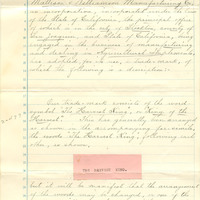 Matteson & Williamson Manufacturing Co.
a corporation, incorporated under the laws
of the State of California, the principal office
of which is in the city of Stockton, county of
San Joaquin, and State of California, and
engaged in the business of manufacturing
and selling
has adopted for its use, a trade-mark, of
which the following is a description:
Our Trade-mark consists of the word
symbol "The Harvest King", or "King of the
Harvest". This has generally been
as shown in the accompanying fac-simile,
the words The Harvest King, following each
other, as shown,
THE HARVEST KING.
but it will be manifest that the arrangement
of the words may be changed, or one of the